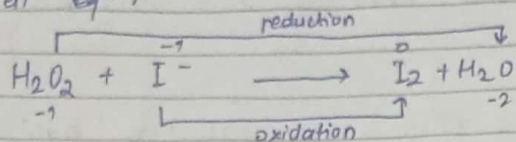 reduction
-1 0
H₂O₂ + I⁻ ⟶ I₂ + H₂O
-1 -2
oxidation